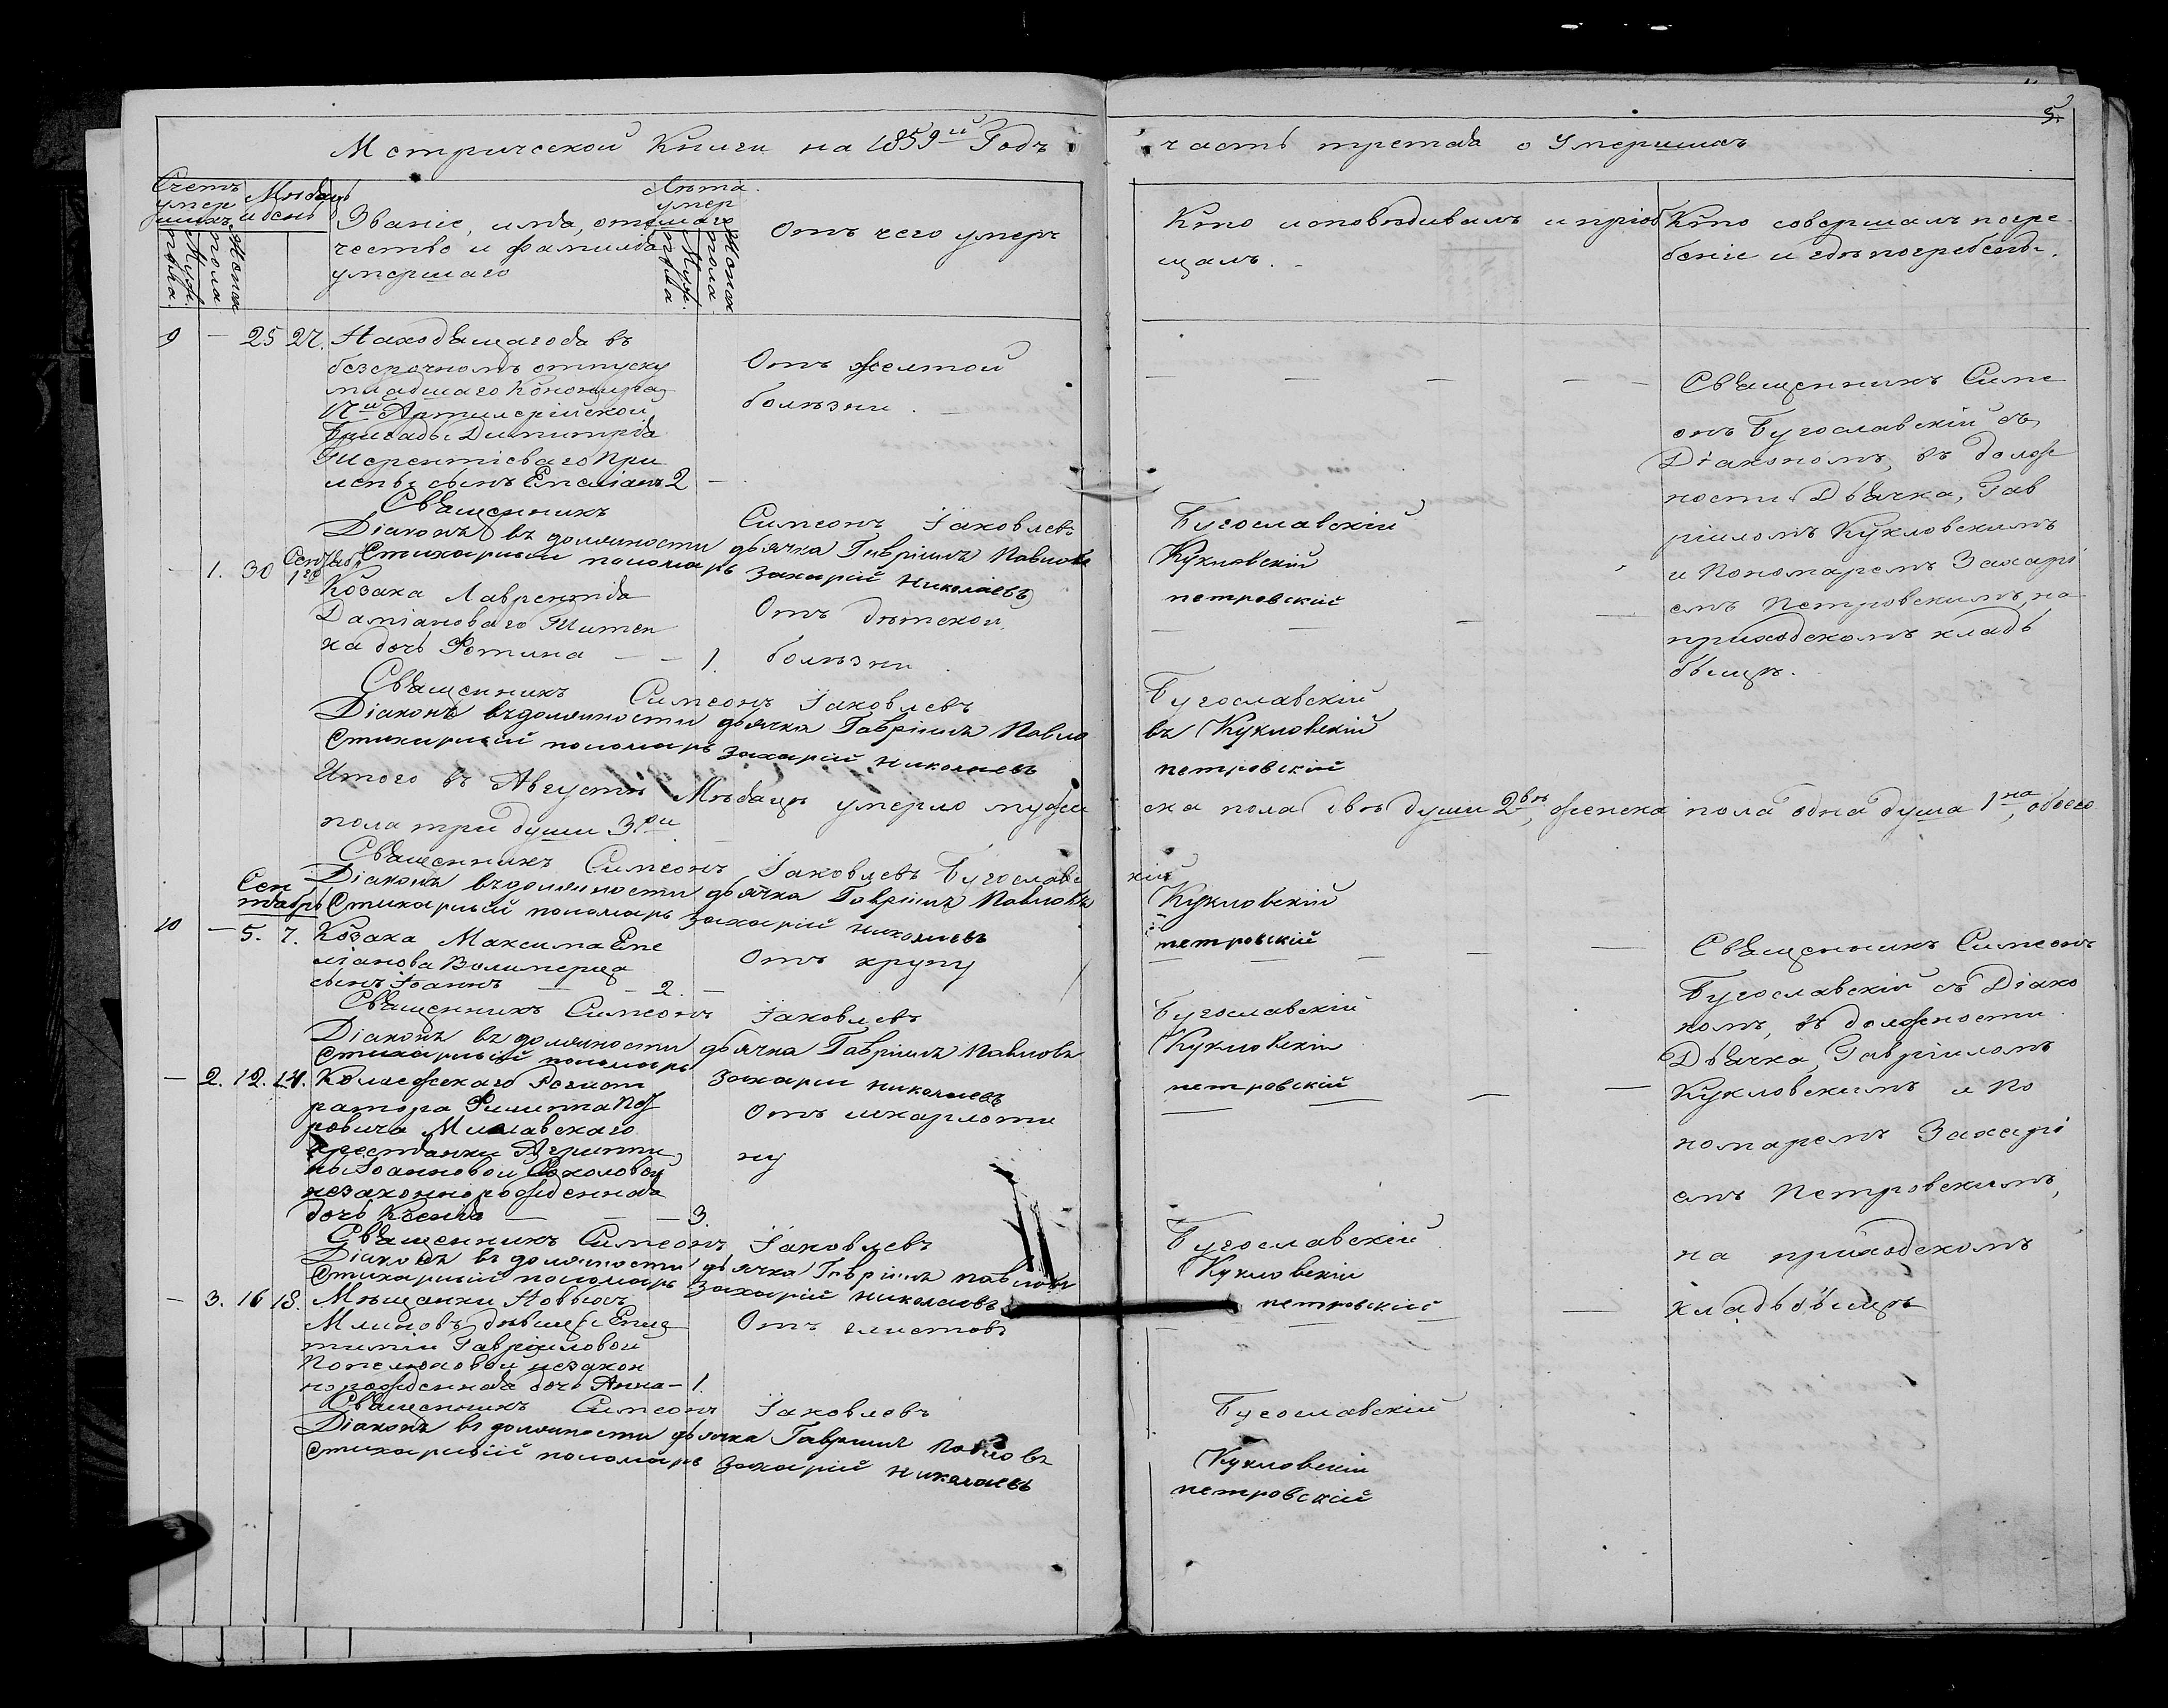 5.
Метрической Книги на 1859й Годъ
часть третая о Умершихъ
Счетъ умершихъ
Мѣсяцъ и день
Званіе, имя, отчество и фамилія умершаго
Лѣта умершаго
Отъ чего умеръ
Кто исповѣдивалъ и пріобщалъ.
Кто совершалъ погребеніе и гдѣ погребены.
Муж. пола
Женск. пола
Муж. пола
Женск. пола
9 — 25 27. Находящагося въ
безсрочномъ отпуску
младшаго
17й Артилерійской
Бригады Димитрія
Терентіеваго При
сынъ Емеліанъ 2
Отъ желтой
болѣзни.
Священникъ Симеонъ Іаковлевъ Бугославскій
Діаконъ въ должности дьячка Гавріилъ Павловъ Кукловскій
Стихарный пономарь Захарій Николаевъ петровскій
Священникъ Симе
онъ Бугославскій съ
Діакономъ, въ долж
ности Дьячка, Гав
ріиломъ Кукловскимъ
и Пономаремъ Захарі
емъ Петровскимъ, на
приходскомъ кладь
бищѣ.
— 1. 30 Сентябр 1го
Козака Лаврентія
Даміановаго Титен
ка дочь Фотина — — 1.
Отъ дѣтской
болѣзни.
Священникъ Симеонъ Іаковлевъ Бугославскій
Діаконъ въ должности дьячка Гавріилъ Павловъ Кукловскій
Стихарный пономарь Захарій Николаевъ петровскій
Итого въ Августѣ Мѣсяцѣ умерло мужеска пола двѣ души 2вѣ, женска пола одна душа 1на, обоего
пола три души 3ри
Священникъ Симеонъ Іаковлевъ Бугославскій
Діаконъ въ должности дьячка Гавріилъ Павловъ Кукловскій
Стихарный пономарь Захарій Николаевъ петровскій
Сентябрь
10 — 5. 7. Козака Максима Еме
ліанова Волимерца
сынъ Іоаннъ — 2. —
Отъ крупу
Священникъ Симеонъ Іаковлевъ Бугославскій
Діаконъ въ должности дьячка Гавріилъ Павловъ Кукловскій
Стихарный пономарь Захарій Николаевъ петровскій
Священникъ Симеонъ
Бугославскій съ Діако
номъ, въ должности
Дьячка, Гавріиломъ
Кукловскимъ и По
номаремъ Захарі
емъ Петровскимъ,
на приходскомъ
кладьбищѣ
— 2. 12. 14. Колежскаго Регист
ратора Филиппа Пет
ровича Милавскаго
крестянки Агрипи
ны Іоанновой Соколовой
незаконнорожденная
дочь Ксенія — — 3.
Отъ шкарлоти
ну
Священникъ Симеонъ Іаковлевъ Бугославскій
Діаконъ въ должности дьячка Гавріилъ Павловъ Кукловскій
Стихарный пономарь Захарій Николаевъ петровскій
— 3. 16 18. Мѣщанки Новыхъ
Млиновъ дѣвицы
Гавріиловой
незакон
норожденная дочь Анна — 1.
Отъ глистовъ
Священникъ Симеонъ Іаковлевъ Бугославскій
Діаконъ въ должности дьячка Гавріилъ Павловъ Кукловскій
Стихарный пономарь Захарій Николаевъ петровскій